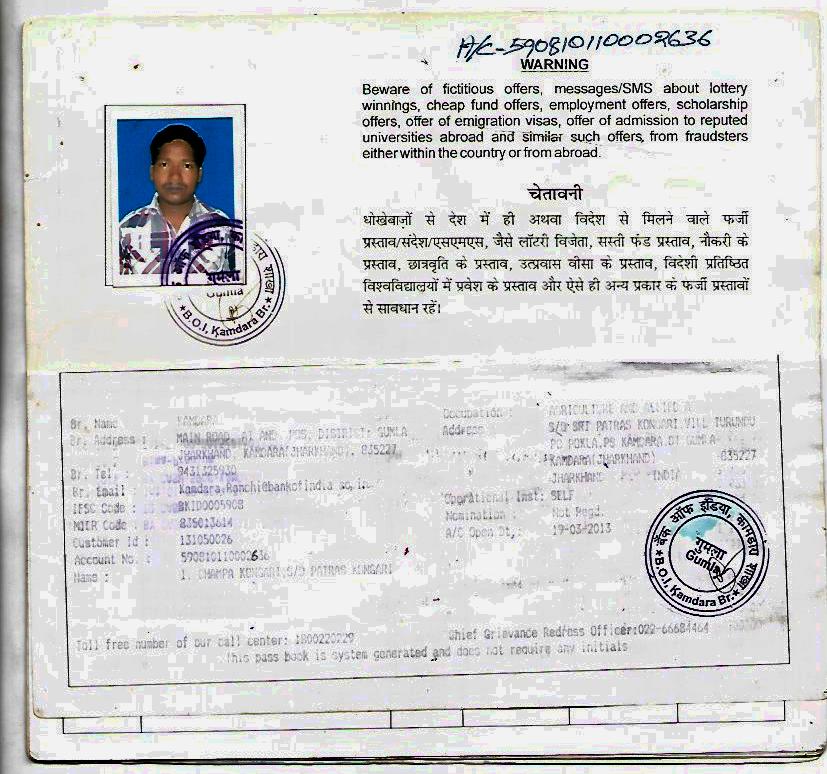 A/C-590810110002636
WARNING
Beware of fictitious offers, messages/SMS about lottery
winnings, cheap fund offers, employment offers, scholarship
offers, offer of emigration visas, offer of admission to reputed
universities abroad and similar such offers, from fraudsters
either within the country or from abroad.
चेतावनी
धोखेबाज़ों से देश में ही अथवा विदेश से मिलने वाले फर्जी
प्रस्ताव/संदेश/एसएमएस, जैसे लॉटरी विजेता, सस्ती फंड प्रस्ताव, नौकरी के
प्रस्ताव, छात्रवृति के प्रस्ताव, उत्प्रवास वीसा के प्रस्ताव, विदेशी प्रतिष्ठित
विश्वविद्यालयों में प्रवेश के प्रस्ताव और ऐसे ही अन्य प्रकार के फर्जी प्रस्तावों
से सावधान रहें।
शाखा
गुमला
Gumla
*B.O.I, Kamdara Br.*
Br. Name KAMDARA
Br. Address : MAIN ROAD, AT AND POS, DISTRICT: GUMLA
JHARKHAND, KAMDARA(JHARKHAND), 835227
Br. Tel : 9431325930
Br. Email : Kamdara.Ranchi@bankofindia.co.in
IFSC Code : BKID0005908
MICR Code : 835013614
Customer Id : 131050026
Account No. : 590810110002636
Name : 1. CHAMPA KONGARI,S/O PATRAS KONGARI
Occupation : AGRICULTURE AND ALLIED A
Address S/O SRI PATRAS KONGARI VILL TURUNDU
PO POKLA,PS KAMDARA,DT GUMLA
KAMDARA(JHARKHAND) 835227
JHARKHAND INDIA
Operational Inst: SELF
Nomination : Not Regd.
A/C Open Dt.: 19-03-2013
बैंक ऑफ इंडिया, कामडारा शाखा
गुमला
Gumla
*B.O.I, Kamdara Br.*
Toll free number of our call center: 1800220229 Chief Grievance Redress Officer:022-66684464
This pass book is system generated and does not require any initials